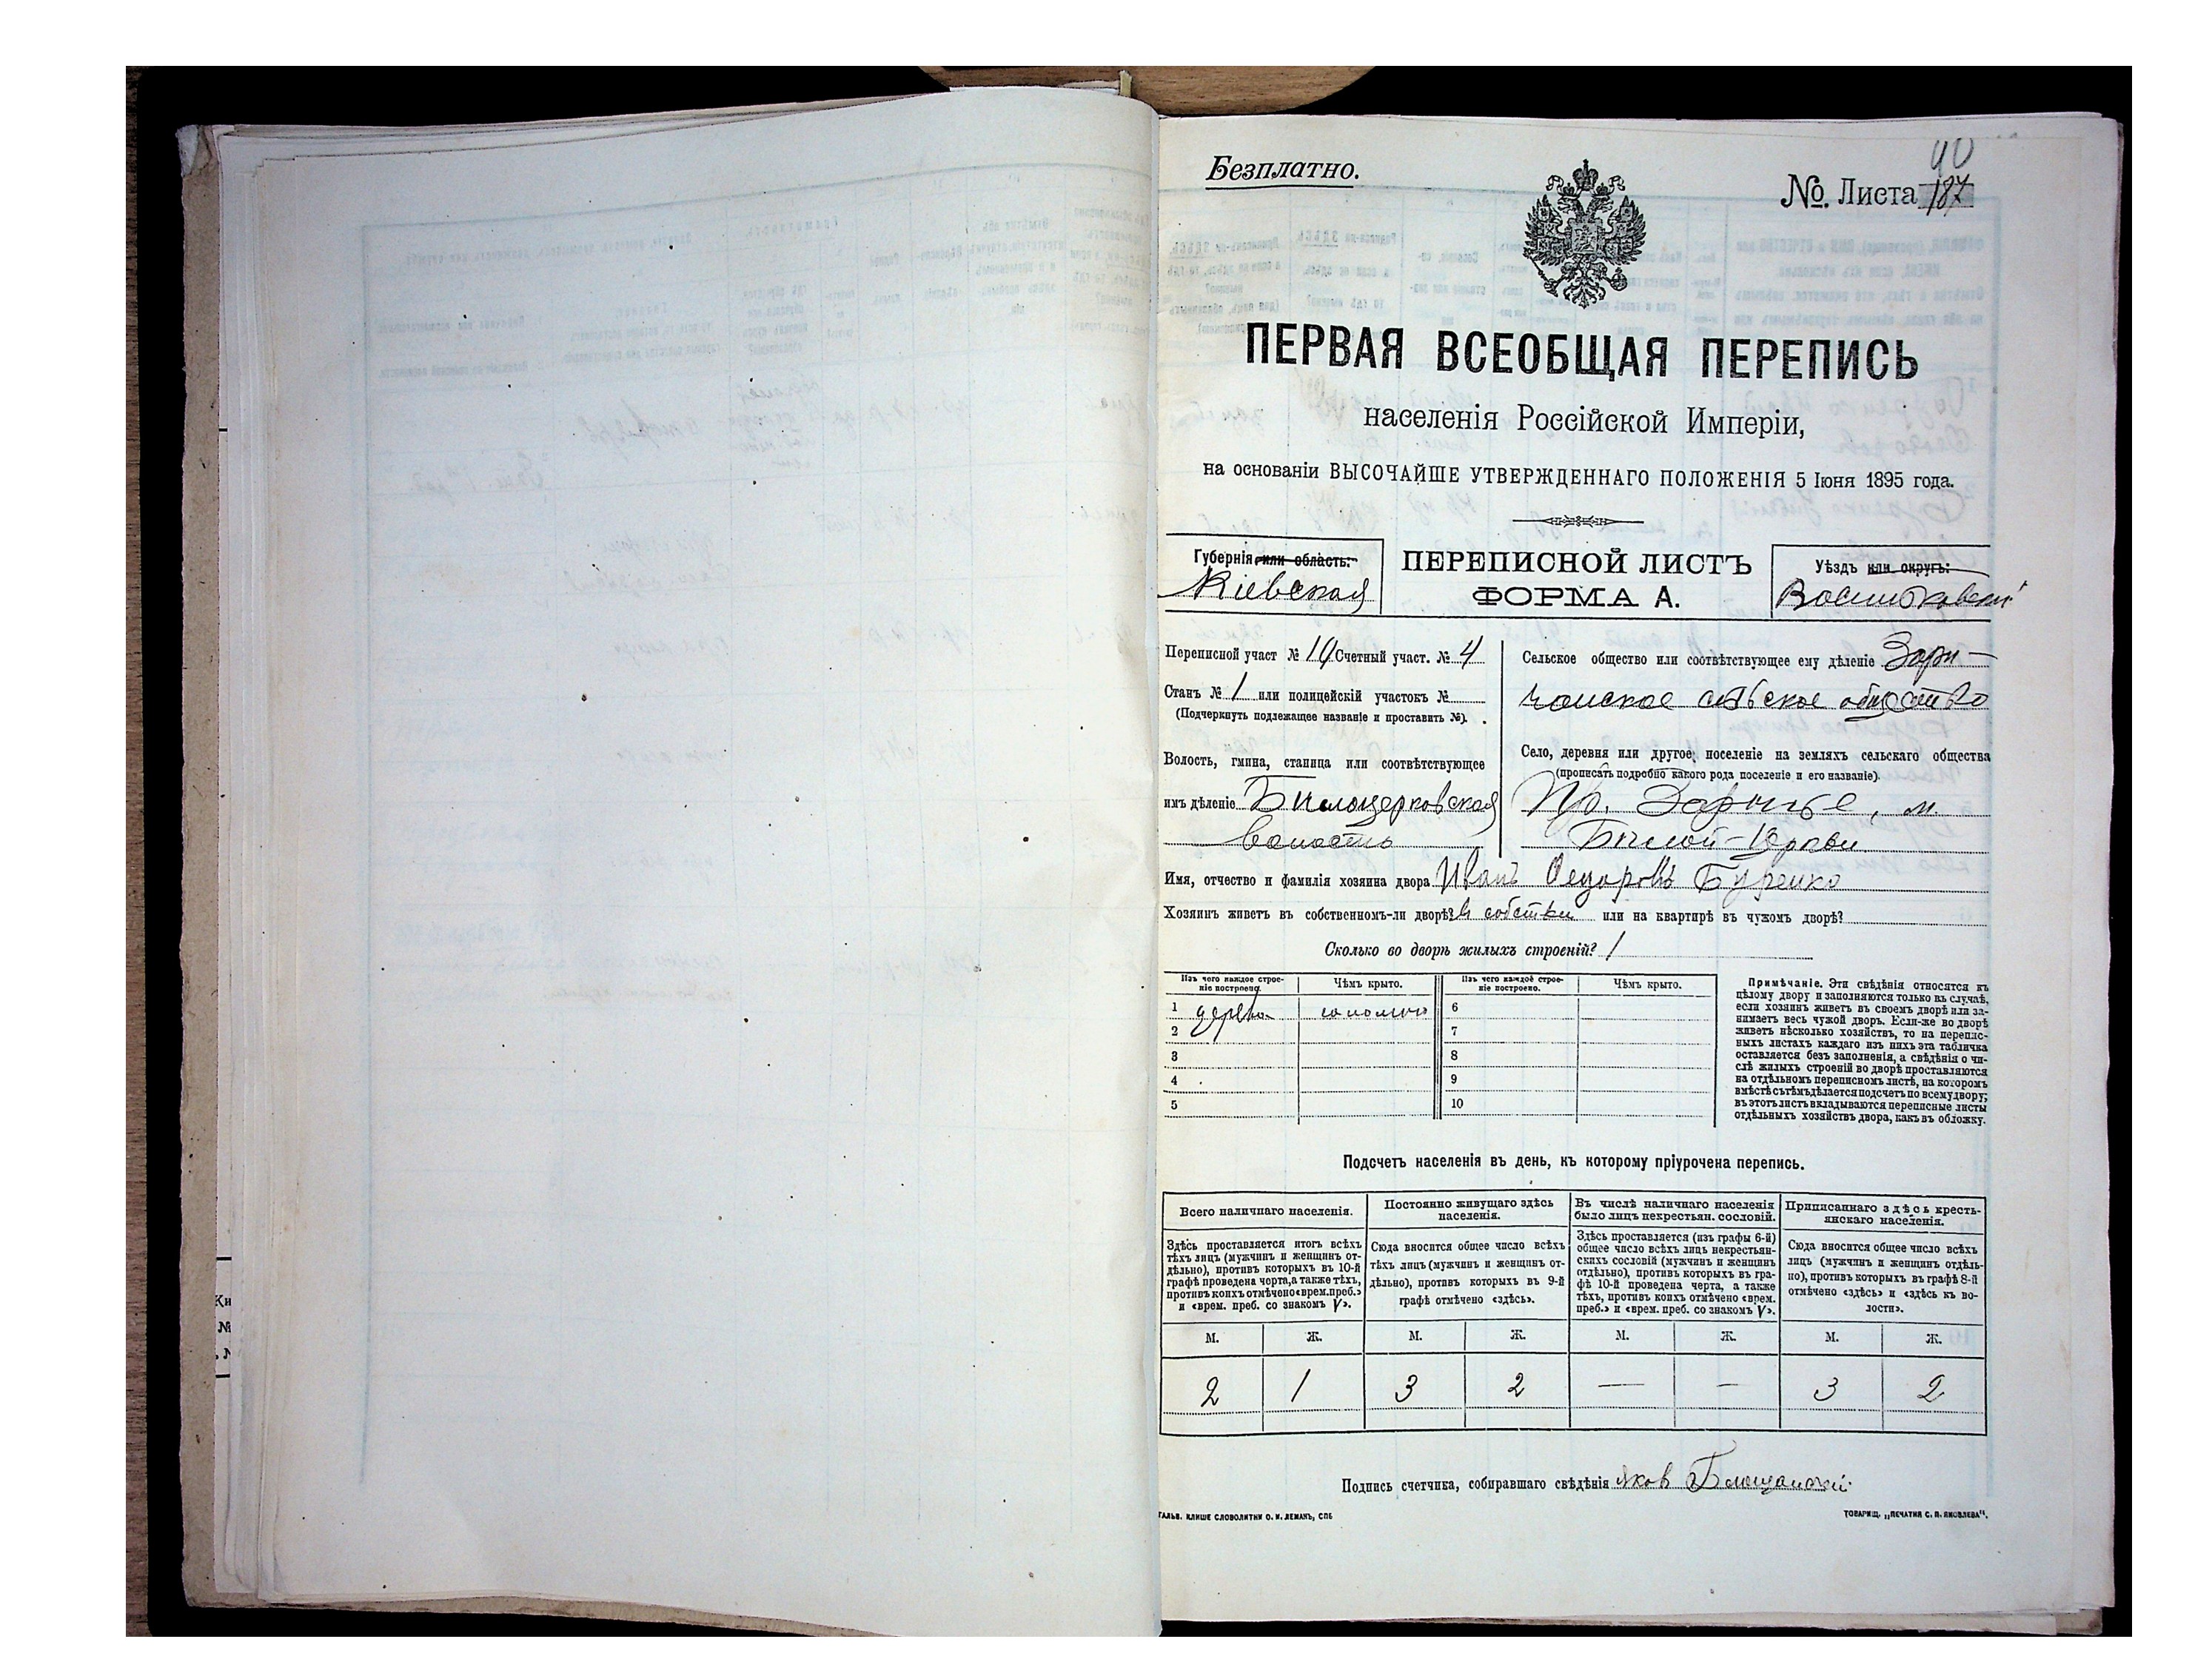 Безплатно.
40
№. Листа 187
ПЕРВАЯ ВСЕОБЩАЯ ПЕРЕПИСЬ
населенія Россійской Имперіи,
на основаніи ВЫСОЧАЙШЕ УТВЕРЖДЕННАГО ПОЛОЖЕНІЯ 5 Іюня 1895 года.
Губернія или область:
Кіевская
ПЕРЕПИСНОЙ ЛИСТЪ
ФОРМА А.
Уѣздъ или округъ:
Васильковскій
Переписной участ № 10 Счетный участ. № 4
Станъ № 1 или полицейскій участокъ №
(Подчеркнуть подлежащее названіе и проставить №).
Волость, гмина, станица или соотвѣтствующее
имъ дѣленіе Бѣлоцерковская
волость
Сельское общество или соотвѣтствующее ему дѣленіе Зарѣ-
чанское сельское общество
Село, деревня или другое поселеніе на земляхъ сельскаго общества
(прописать подробно какого рода поселеніе и его названіе).
Пр. Зарѣчье, м.
Бѣлой-Церкви
Имя, отчество и фамилія хозяина двора Иванъ Федоровъ Буренко
Хозяинъ живетъ въ собственномъ-ли дворѣ? въ собствен или на квартирѣ въ чужомъ дворѣ?
Сколько во дворѣ жилыхъ строеній? 1
Изъ чего каждое строе-
ніе построено.
Чѣмъ крыто.
Изъ чего каждое строе-
ніе построено.
Чѣмъ крыто.
1 дерева соломою 6
2 7
3 8
4 9
5 10
Примѣчаніе. Эти свѣдѣнія относятся къ
цѣлому двору и заполняются только въ случаѣ,
если хозяинъ живетъ въ своемъ дворѣ или за-
нимаетъ весь чужой дворъ. Если-же во дворѣ
живетъ нѣсколько хозяйствъ, то на перепис-
ныхъ листахъ каждаго изъ нихъ эта табличка
оставляется безъ заполненія, а свѣдѣнія о чи-
слѣ жилыхъ строеній во дворѣ проставляются
на отдѣльномъ переписномъ листѣ, на которомъ
вмѣстѣ съ тѣмъ дѣлается подсчетъ по всему двору;
въ этотъ листъ вкладываются переписные листы
отдѣльныхъ хозяйствъ двора, какъ въ обложку.
Подсчетъ населенія въ день, къ которому пріурочена перепись.
Всего наличнаго населенія.
Здѣсь проставляется итогъ всѣхъ
тѣхъ лицъ (мужчинъ и женщинъ от-
дѣльно), противъ которыхъ въ 10-й
графѣ проведена черта, а также тѣхъ,
противъ коихъ отмѣчено «врем. преб.»
и «врем. преб. со знакомъ V».
Постоянно живущаго здѣсь
населенія.
Сюда вносится общее число всѣхъ
тѣхъ лицъ (мужчинъ и женщинъ от-
дѣльно), противъ которыхъ въ 9-й
графѣ отмѣчено «здѣсь».
Въ числѣ наличнаго населенія
было лицъ некрестьян. сословій.
Здѣсь проставляется (изъ графы 6-й)
общее число всѣхъ лицъ некрестьян-
скихъ сословій (мужчинъ и женщинъ
отдѣльно), противъ которыхъ въ гра-
фѣ 10-й проведена черта, а также
тѣхъ, противъ коихъ отмѣчено «врем.
преб.» и «врем. преб. со знакомъ V».
Приписаннаго здѣсь кресть-
янскаго населенія.
Сюда вносится общее число всѣхъ
лицъ (мужчинъ и женщинъ отдѣль-
но), противъ которыхъ въ графѣ 8-й
отмѣчено «здѣсь» и «здѣсь къ во-
лости».
М. Ж. М. Ж. М. Ж. М. Ж.
2 1 3 2 — — 3 2
Подпись счетчика, собиравшаго свѣдѣнія Яков
ГАЛЬВ. КЛИШЕ СЛОВОЛИТНИ О. И. ЛЕМАНЪ, СПБ
ТОВАРИЩ. „ПЕЧАТНЯ С. П. ЯКОВЛЕВА".